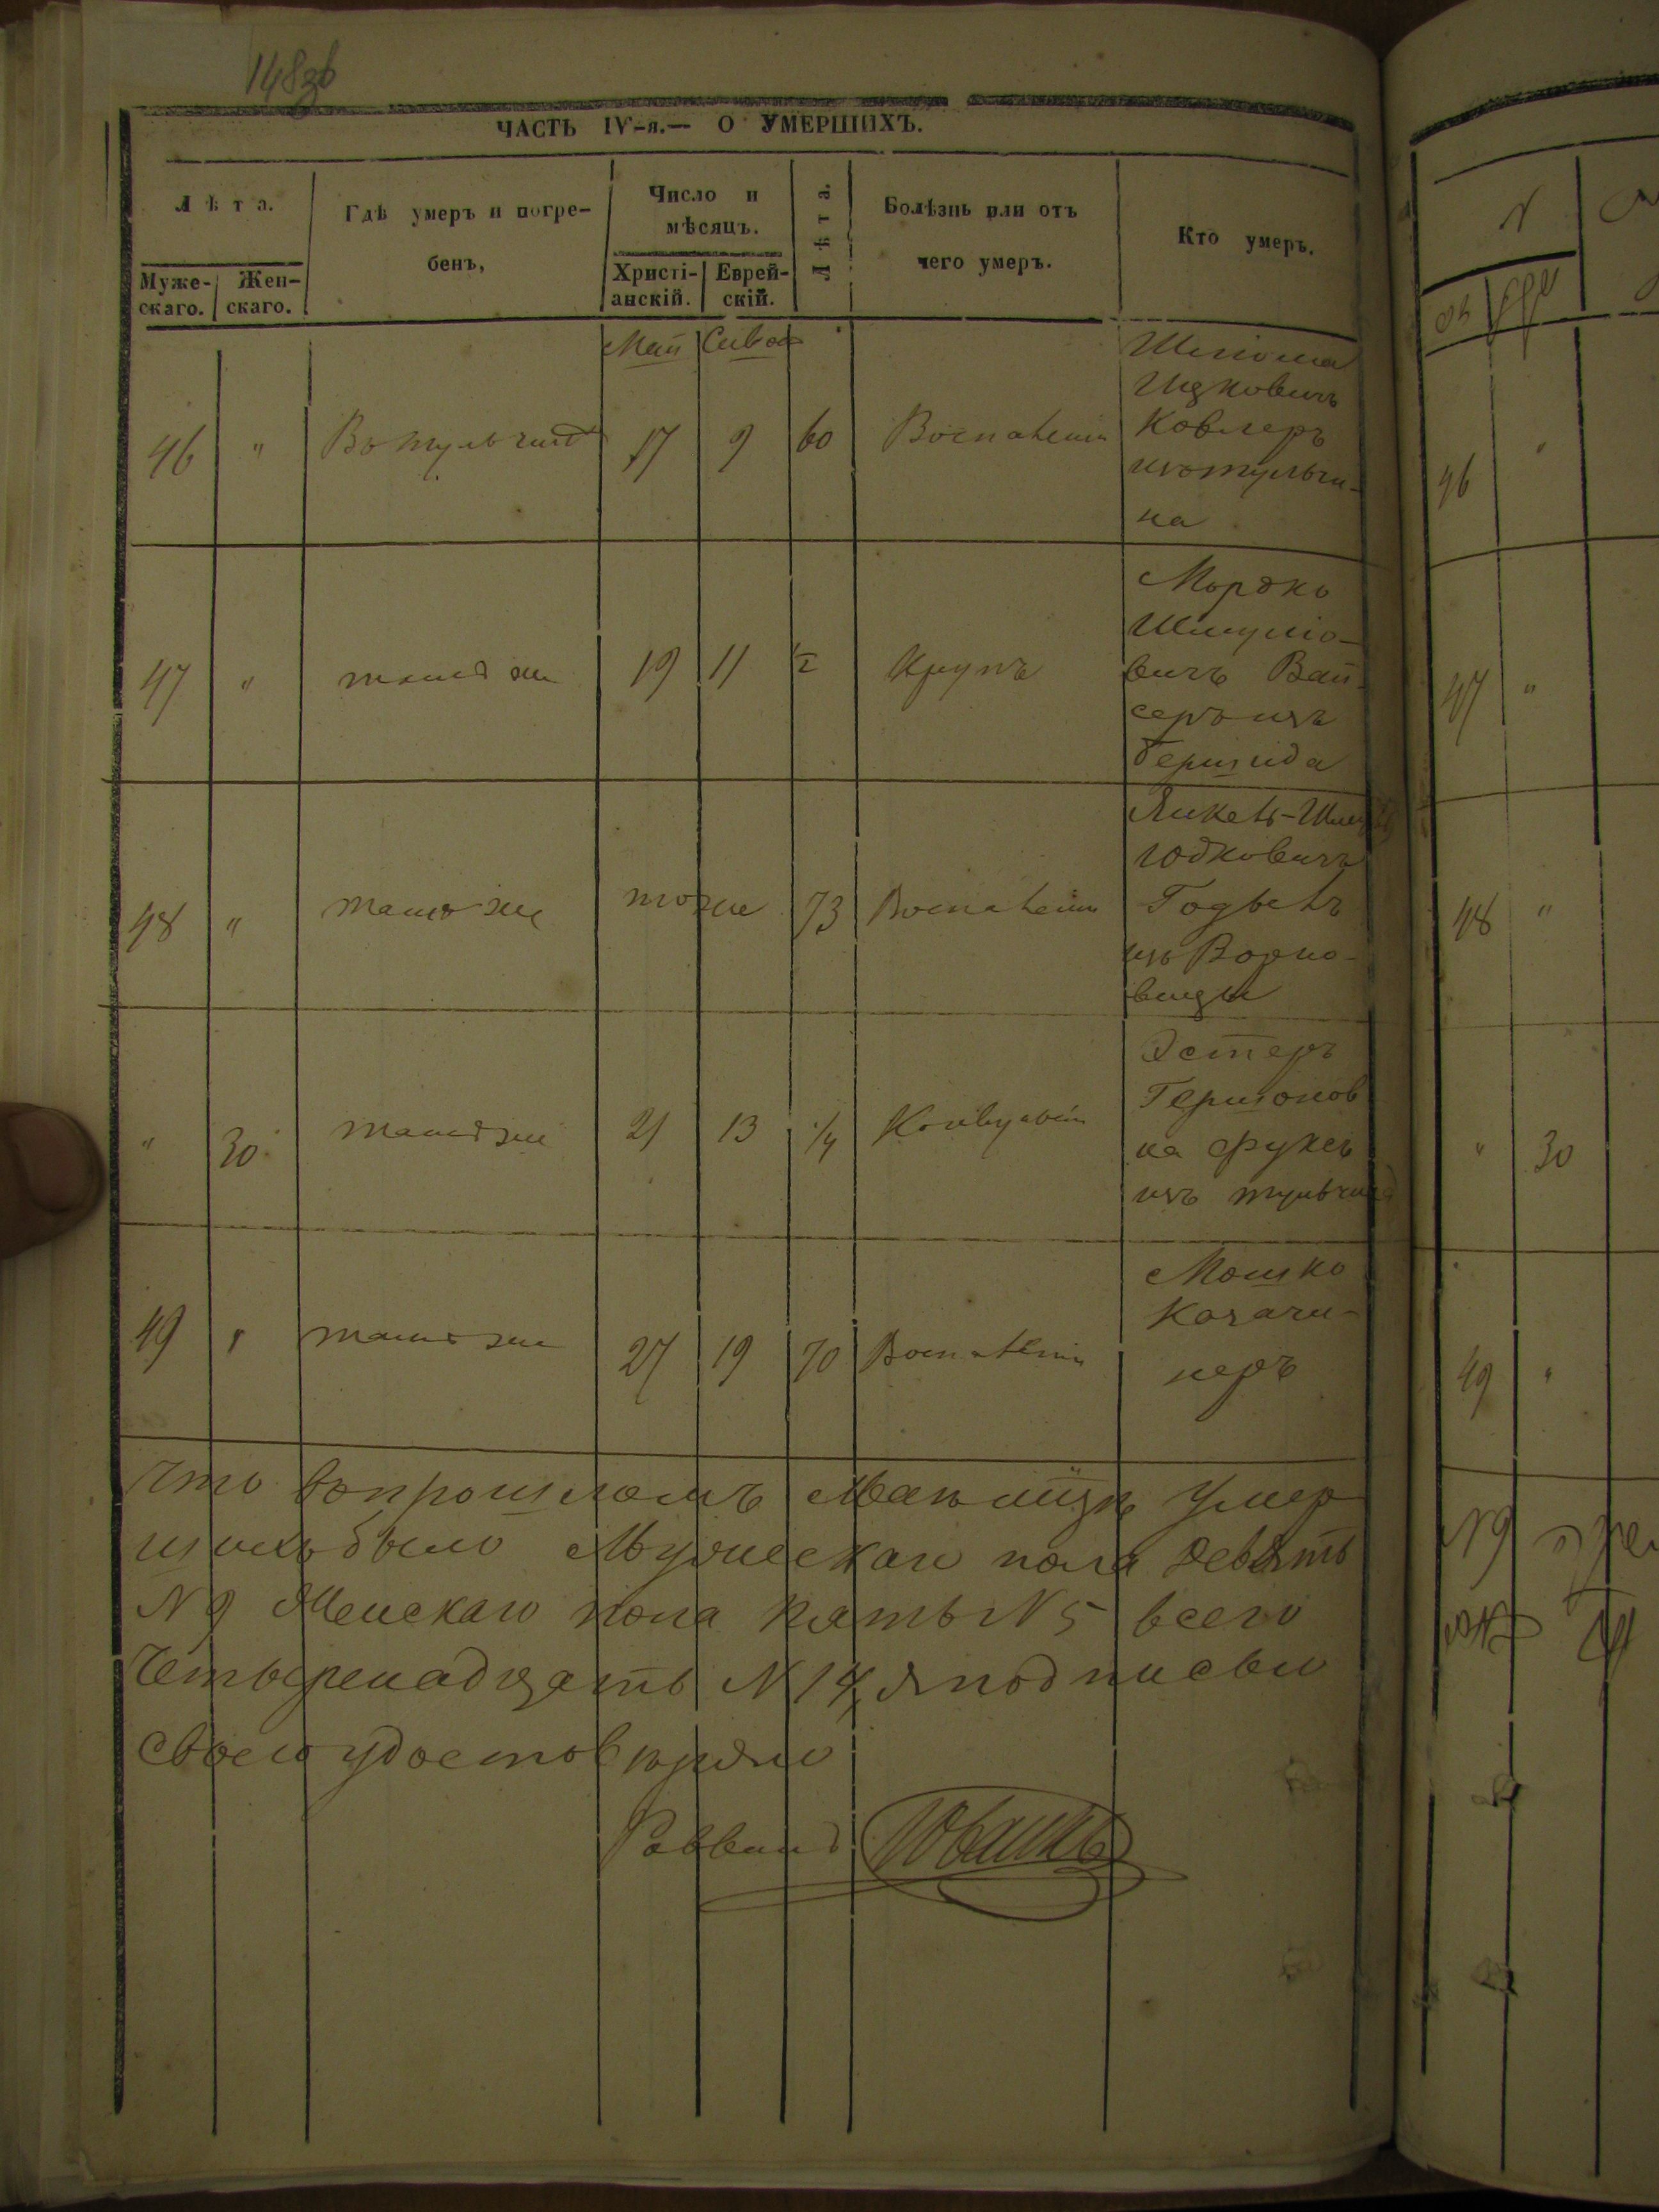 148зв
ЧАСТЬ IV-я.— О УМЕРШИХЪ.
Лѣта.
Мужескаго.
Женскаго.
Гдѣ умеръ и погребенъ,
Число и мѣсяцъ.
Христіанскій.
Еврейскій.
Лѣта.
Болѣзнь или отъ чего умеръ.
Кто умеръ.
Май Сивонъ
46 " Въ Тульчинѣ 17 9 60 Воспаленія
Шлiома
Ицковичъ
Ковлеръ
изъ Тульчи-
на
47 " тамъ же 19 11 ½ Крупъ
Мордко
Шмуліо-
вичъ Вай-
серъ изъ
Бершида
48 " тамъ же тоже 73 Воспаленія
Янкель-
Юдковичъ
изъ
вицы
" 30 тамъ же 21 13 ¼ Конвульсіи
Эстеръ
Гершонов
на Фуксъ
изъ Тульчина
49 " тамъ же 27 19 70 Воспаленія
Мошко
Казачи-
неръ
Что въ прошломъ Маѣ мцѣ умер
шихъ было Мужескаго пола девять
N 9 Женскаго пола пять N 5 всего
Четыренадцать N 14, я подписью
своею удостовѣряю
Раввинъ
46 "
47 "
48 "
" 30
49 "
N9